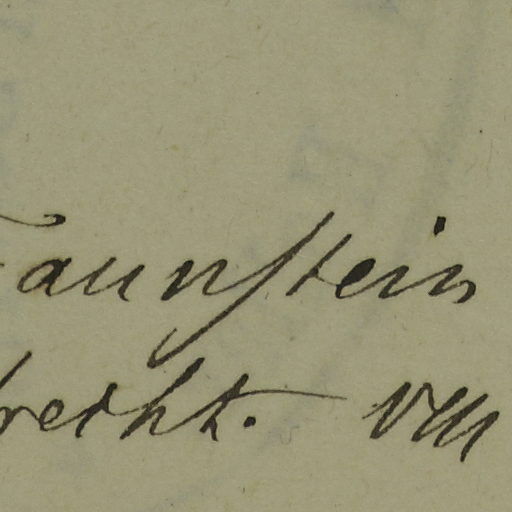 Taunstein
brecht. VIII